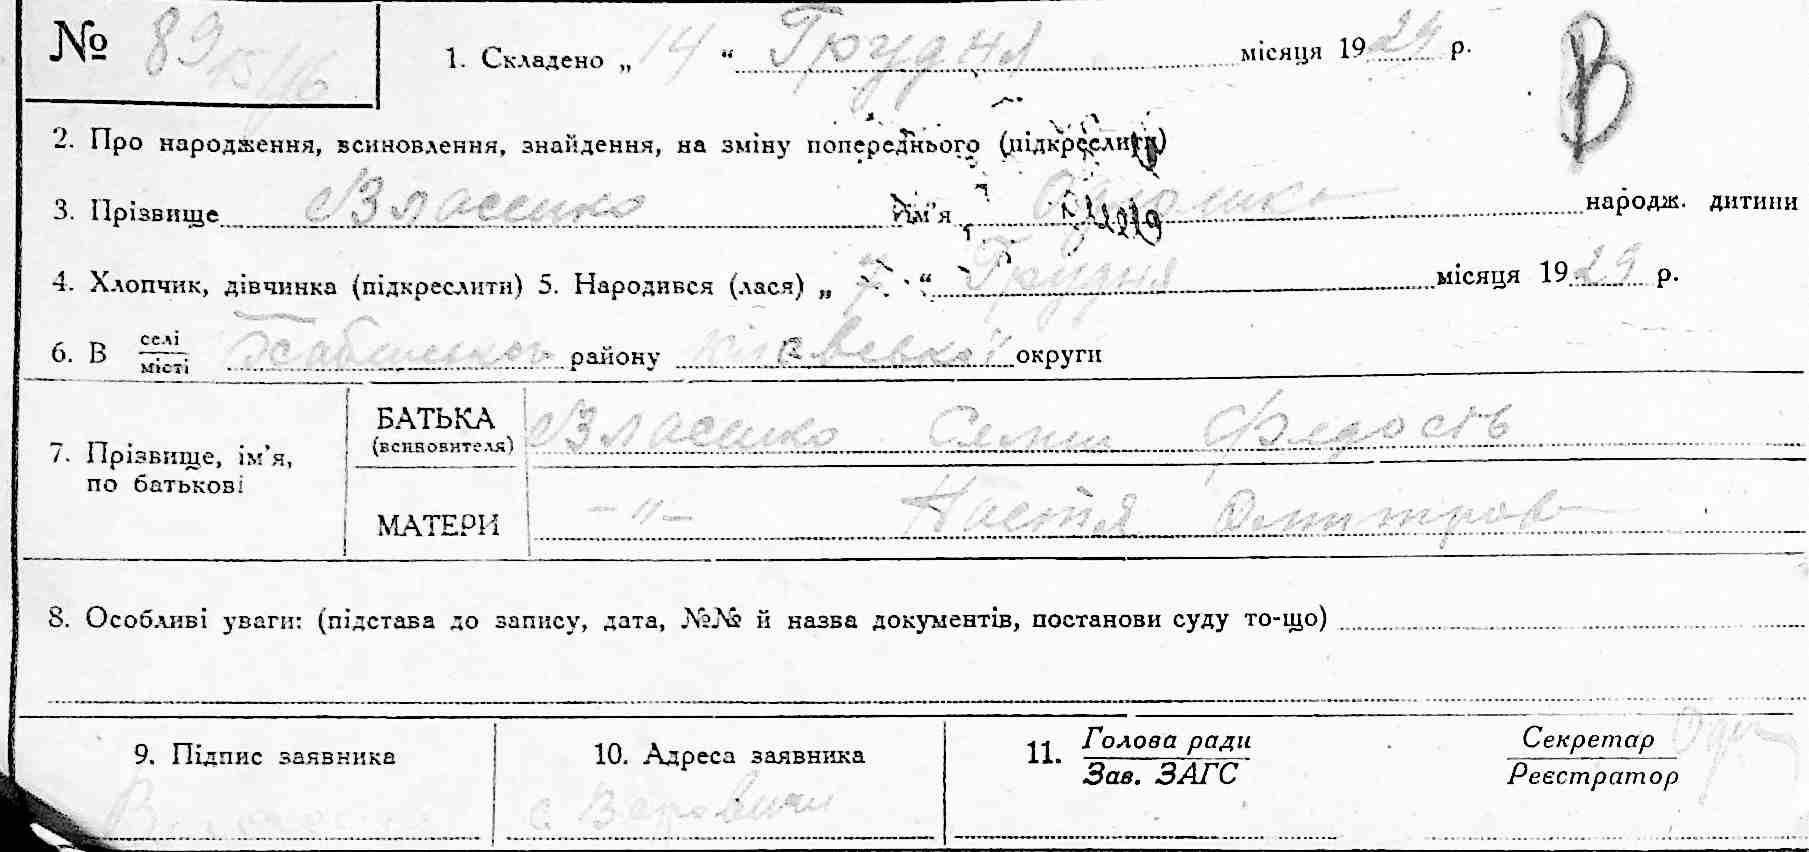 № 89 15/16 1. Складено „ 14 “ Грудня місяця 1929 р. В
2. Про народження, всиновлення, знайдення, на зміну попереднього (підкреслити)
3. Прізвище Власенко Ім'я народж. дитини
4. Хлопчик, дівчинка (підкреслити) 5. Народився (лася) „ 7 “ Грудня місяця 1929 р.
6. В селі/місті району округи
7. Прізвище, ім'я, по батькові БАТЬКА (всиновителя) Власенко
МАТЕРИ -"- Настя Дмитрова
8. Особливі уваги: (підстава до запису, дата, №№ й назва документів, постанови суду то-що)
9. Підпис заявника 10. Адреса заявника 11. Голова ради/Зав. ЗАГС Секретар/Реєстратор
с